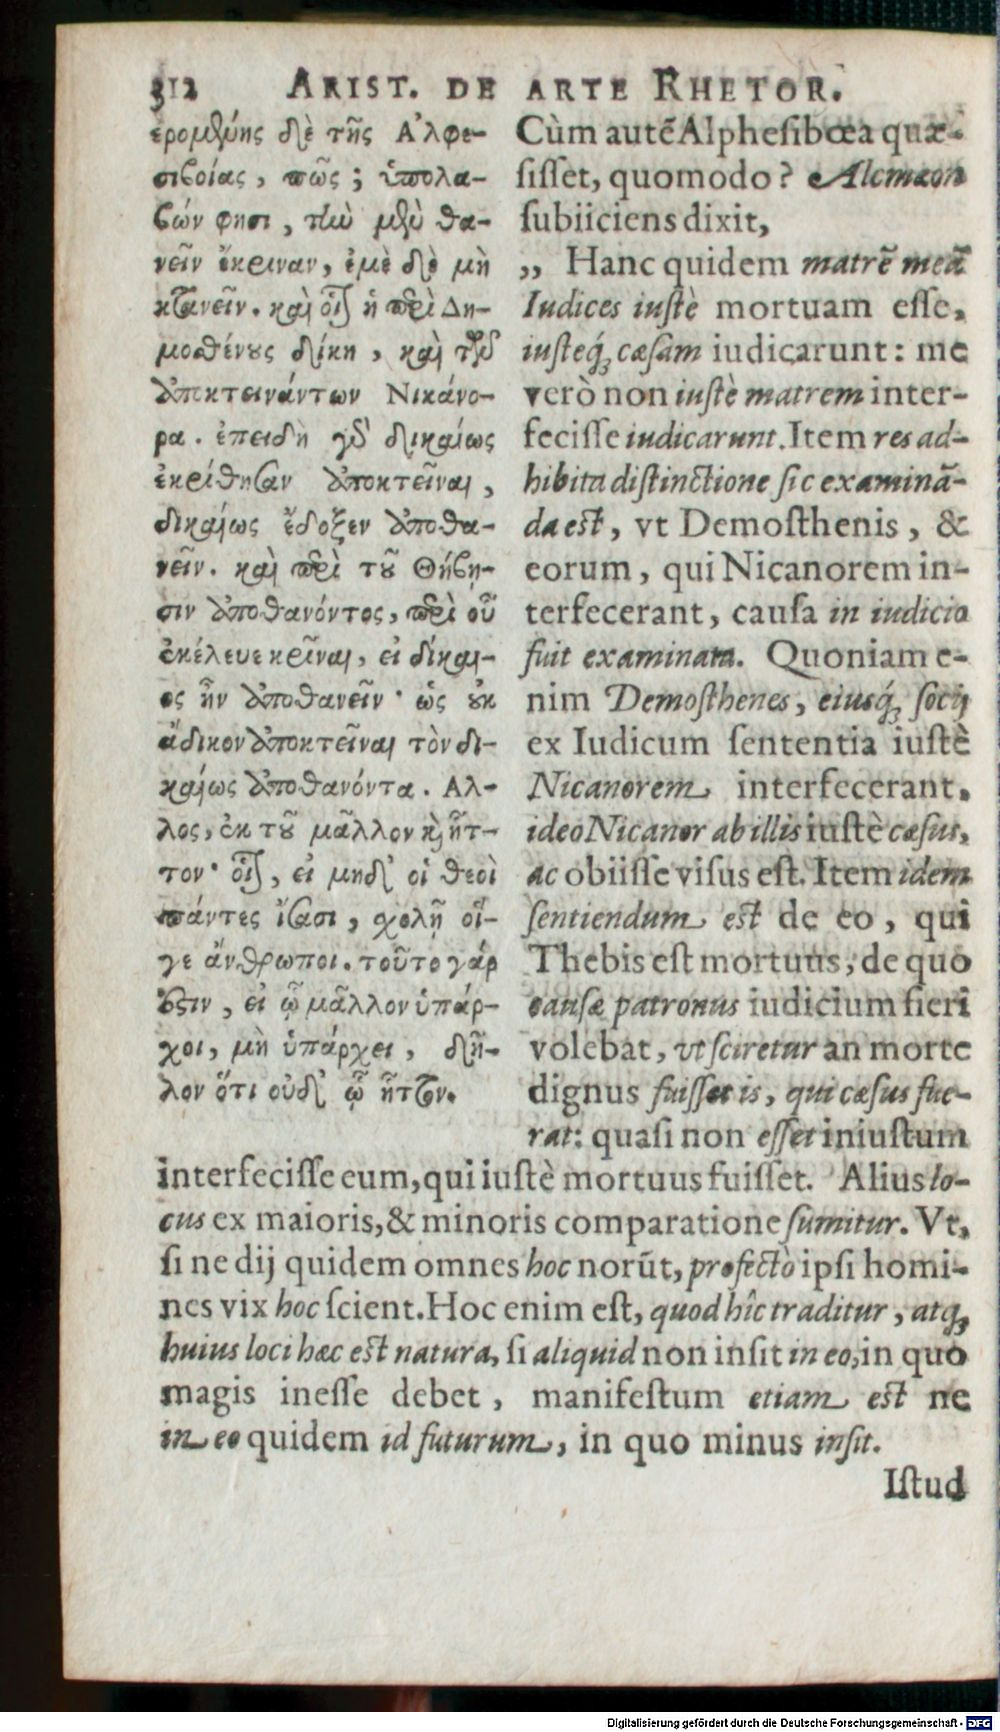 312 ARIST. DE ARTE RHETOR.
ερομένης δὲ τῆς Ἀλφε-
σιβοίας, πῶς; ὑπολα-
βών φησι, τὴν μὲν θα-
νεῖν ἔκριναν, ἐμὲ δὲ μὴ
κτανεῖν. καὶ οἷον ἡ περὶ Δη-
μοσθένους δίκη, καὶ τῶν
ἀποκτεινάντων Νικάνο-
ρα. ἐπειδὴ γὰρ δικαίως
ἐκρίθησαν ἀποκτεῖναι,
δικαίως ἔδοξεν ἀποθα-
νεῖν. καὶ περὶ τοῦ Θήβη-
σιν ἀποθανόντος, περὶ οὗ
ἐκέλευε κρῖναι, εἰ δίκαι-
ος ἦν ἀποθανεῖν· ὡς οὐκ
ἄδικον ἀποκτεῖναι τὸν δι-
καίως ἀποθανόντα. Ἀλ-
λος, ἐκ τοῦ μᾶλλον καὶ ἧτ-
τον· οἷον, εἰ μηδ' οἱ θεοὶ
πάντες ἴσασι, σχολῇ οἵ-
γε ἄνθρωποι. τοῦτο γάρ
ἐστιν, εἰ ᾧ μᾶλλον ὑπάρ-
χοι, μὴ ὑπάρχει, δῆ-
λον ὅτι οὐδ' ᾧ ἧττον.
Cùm autẽ Alphesibœa quæ-
sisset, quomodo? Alcmæon
subiiciens dixit,
,, Hanc quidem matrẽ meã
Iudices iustè mortuam esse,
iusteq́; cæsam iudicarunt: me
verò non iustè matrem inter-
fecisse iudicarunt. Item res ad-
hibita distinctione sic examinã-
da est, vt Demosthenis, &
eorum, qui Nicanorem in-
terfecerant, causa in iudicio
fuit examinata. Quoniam e-
nim Demosthenes, eiusq́; socij
ex Iudicum sententia iustè
Nicanorem interfecerant,
ideo Nicanor ab illis iustè cæsus,
ac obiisse visus est. Item idem
sentiendum est de eo, qui
Thebis est mortuus, de quo
causæ patronus iudicium fieri
volebat, vt sciretur an morte
dignus fuisset is, qui cæsus fue-
rat: quasi non esset iniustum
interfecisse eum, qui iustè mortuus fuisset. Alius lo-
cus ex maioris, & minoris comparatione sumitur. Vt,
si ne dij quidem omnes hoc norũt, profectò ipsi homi-
nes vix hoc scient. Hoc enim est, quod hîc traditur, atq;
huius loci hæc est natura, si aliquid non insit in eo, in quo
magis inesse debet, manifestum etiam est ne
in eo quidem id futurum, in quo minus insit.
Istud
Digitalisierung gefördert durch die Deutsche Forschungsgemeinschaft - DFG